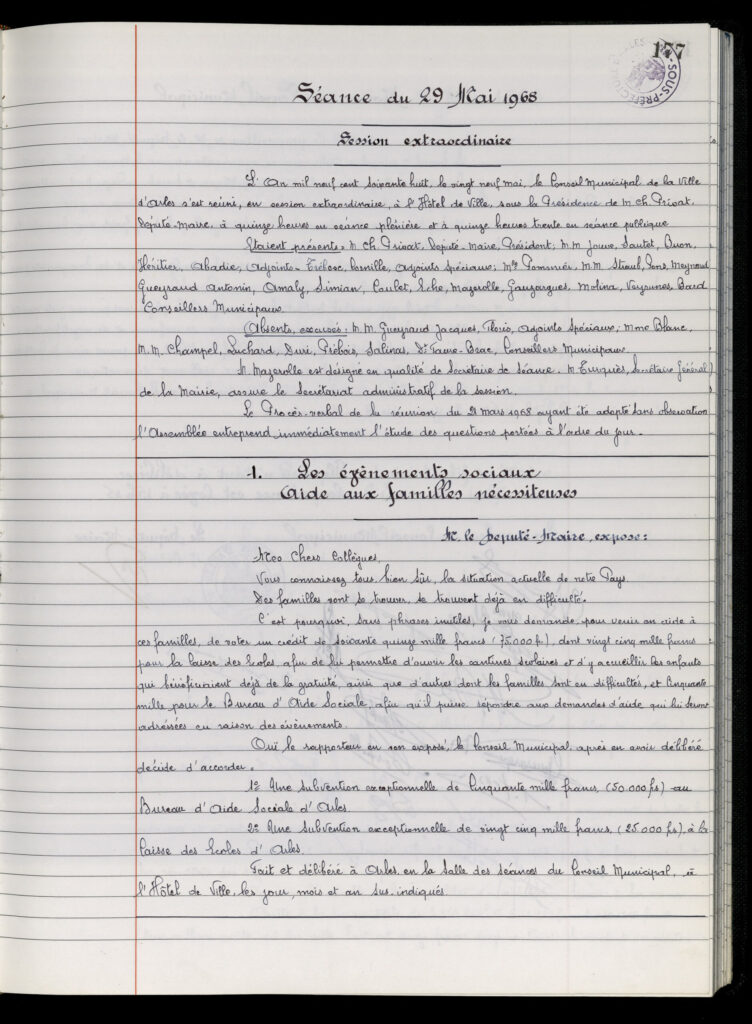 177
SOUS-PRÉFECTURE
Séance du 29 Mai 1968
Session extraordinaire
L'An mil neuf cent soixante huit, le vingt neuf mai, le Conseil Municipal de la Ville
d'Arles s'est réuni, en session extraordinaire, à l'Hôtel de Ville, sous la Présidence de M. Ch. Privat,
Député-Maire, à quinze heures en séance plénière et à quinze heures trente en séance publique
Etaient présents = M. Ch. Privat, Député-Maire, Président; M.M. Jouve, Sautet, Buon,
Héritier, Abadie, Adjoints - Trébosc, Cornille, Adjoints Spéciaux; Mlle Pommier, M.M. Straub, Pons, Meynaud
Gueyraud Antonin, Amaly, Simian, Coulet, Mazerolle, Gauzargues, Molina, Veyrunes, Bard
Conseillers Municipaux.
Absents, excusés: M.M. Gueyraud Jacques, Adjoints Spéciaux; Mme Blanc,
M.M. Champel, Luchard, Duri, Prébois, Salinas, Dr Favre-Brac, Conseillers Municipaux.
M. Mazerolle est désigné en qualité de Secrétaire de Séance. M. Turquès, Secrétaire Général
de la Mairie, assure le Secrétariat administratif de la session.
Le Procès-verbal de la réunion du 21 mars 1968 ayant été adopté sans observation
l'Assemblée entreprend immédiatement l'étude des questions portées à l'ordre du jour.
1. Les évènements sociaux
Aide aux familles nécessiteuses
M. le Député-Maire, expose:
Mes Chers Collègues,
Vous connaissez tous, bien sûr, la situation actuelle de notre Pays.
Des familles vont se trouver, se trouvent déjà en difficulté.
C'est pourquoi, sans phrases inutiles, je vous demande, pour venir en aide à
ces familles, de voter un crédit de soixante quinze mille francs (75.000 f.), dont vingt cinq mille francs
pour la Caisse des Ecoles, afin de lui permettre d'ouvrir les cantines scolaires et d'y accueillir les enfants
qui bénéficiaient déjà de la gratuité, ainsi que d'autres dont les familles sont en difficultés, et Cinquante
mille pour le Bureau d'Aide Sociale, afin qu'il puisse répondre aux demandes d'aide qui lui seront
adressées en raison des évènements.
Ouï le rapporteur en son exposé, le Conseil Municipal, après en avoir délibéré
décide d'accorder.
1º Une Subvention exceptionnelle de Cinquante mille francs, (50.000 frs) au
Bureau d'Aide Sociale d'Arles.
2º Une Subvention exceptionnelle de vingt cinq mille francs, (25.000 frs), à la
Caisse des Ecoles d'Arles.
Fait et délibéré à Arles, en la Salle des Séances du Conseil Municipal, à
l'Hôtel de Ville, les jour, mois et an sus-indiqués.